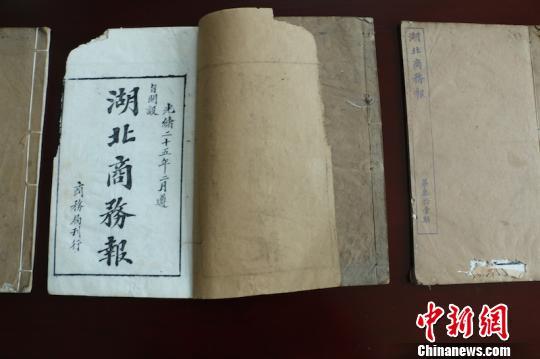 光緒二十五年二月遵
旨開設
湖北商務報
商務局刊行
湖北商務報
中新網
Chinanews.com